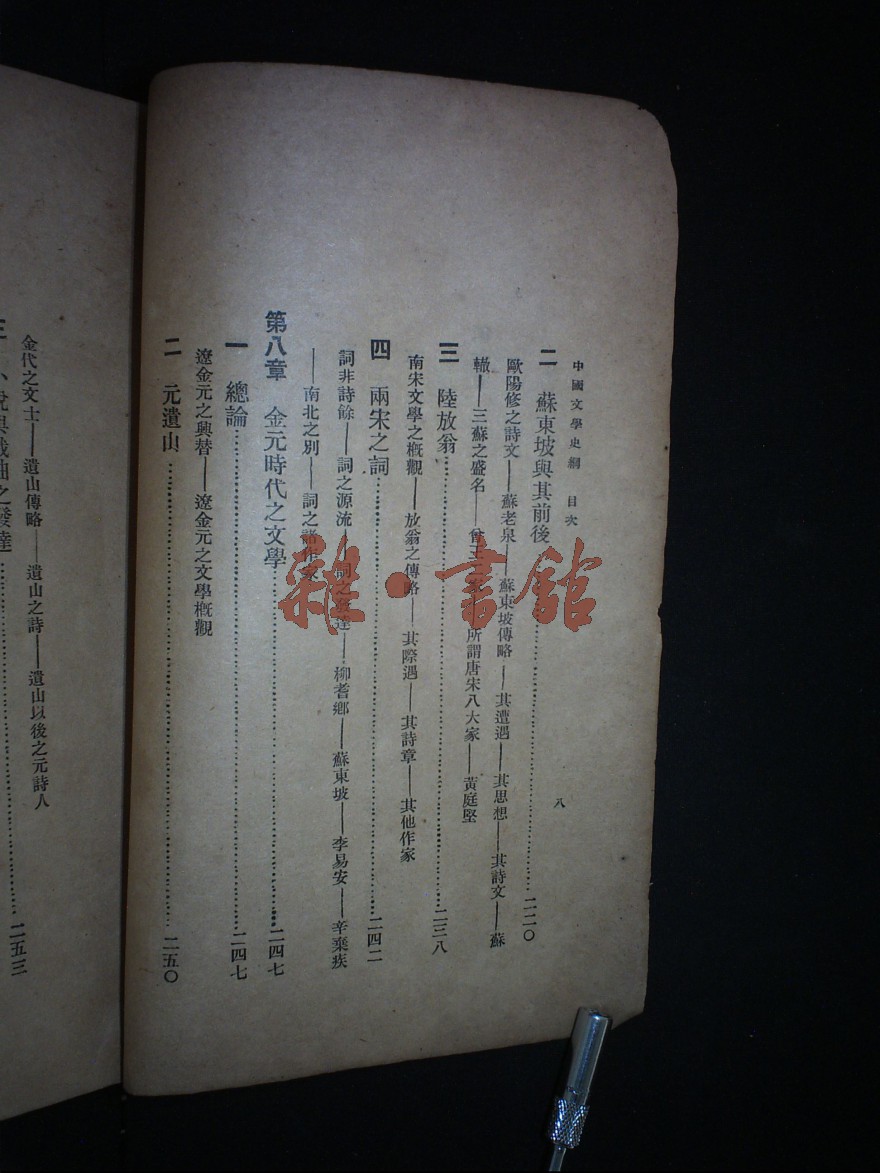 中國文學史綱 目次 八
二 蘇東坡與其前後……二二〇
歐陽修之詩文——蘇老泉——蘇東坡傳略——其遭遇——其思想——其詩文——蘇
轍——三蘇之盛名——曾王 所謂唐宋八大家——黃庭堅
三 陸放翁……二三八
南宋文學之概觀——放翁之傳略——其際遇——其詩章——其他作家
四 兩宋之詞……二四二
詞非詩餘——詞之源流——詞之發達——柳耆鄉——蘇東坡——李易安——辛棄疾
——南北之別——詞之諸作家
第八章 金元時代之文學……二四七
一 總論……二四七
遼金元之興替——遼金元之文學概觀
二 元遺山……二五〇
金代之文士——遺山傳略——遺山之詩——遺山以後之元詩人
三 小說與戲曲之發達……二五三
雜·書館